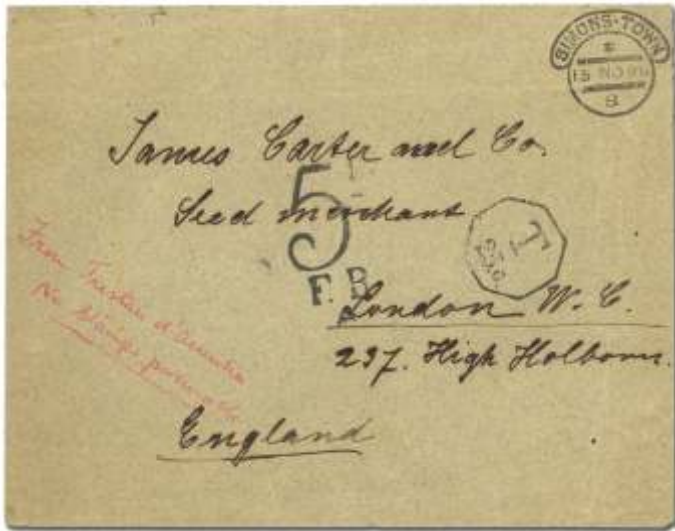 SIMONS-TOWN
James Carter and Co.
Seed merchant
5
F. B.
T
London W. C.
237. High Holborn.
England
From Tristan d'Acunha
No stamps